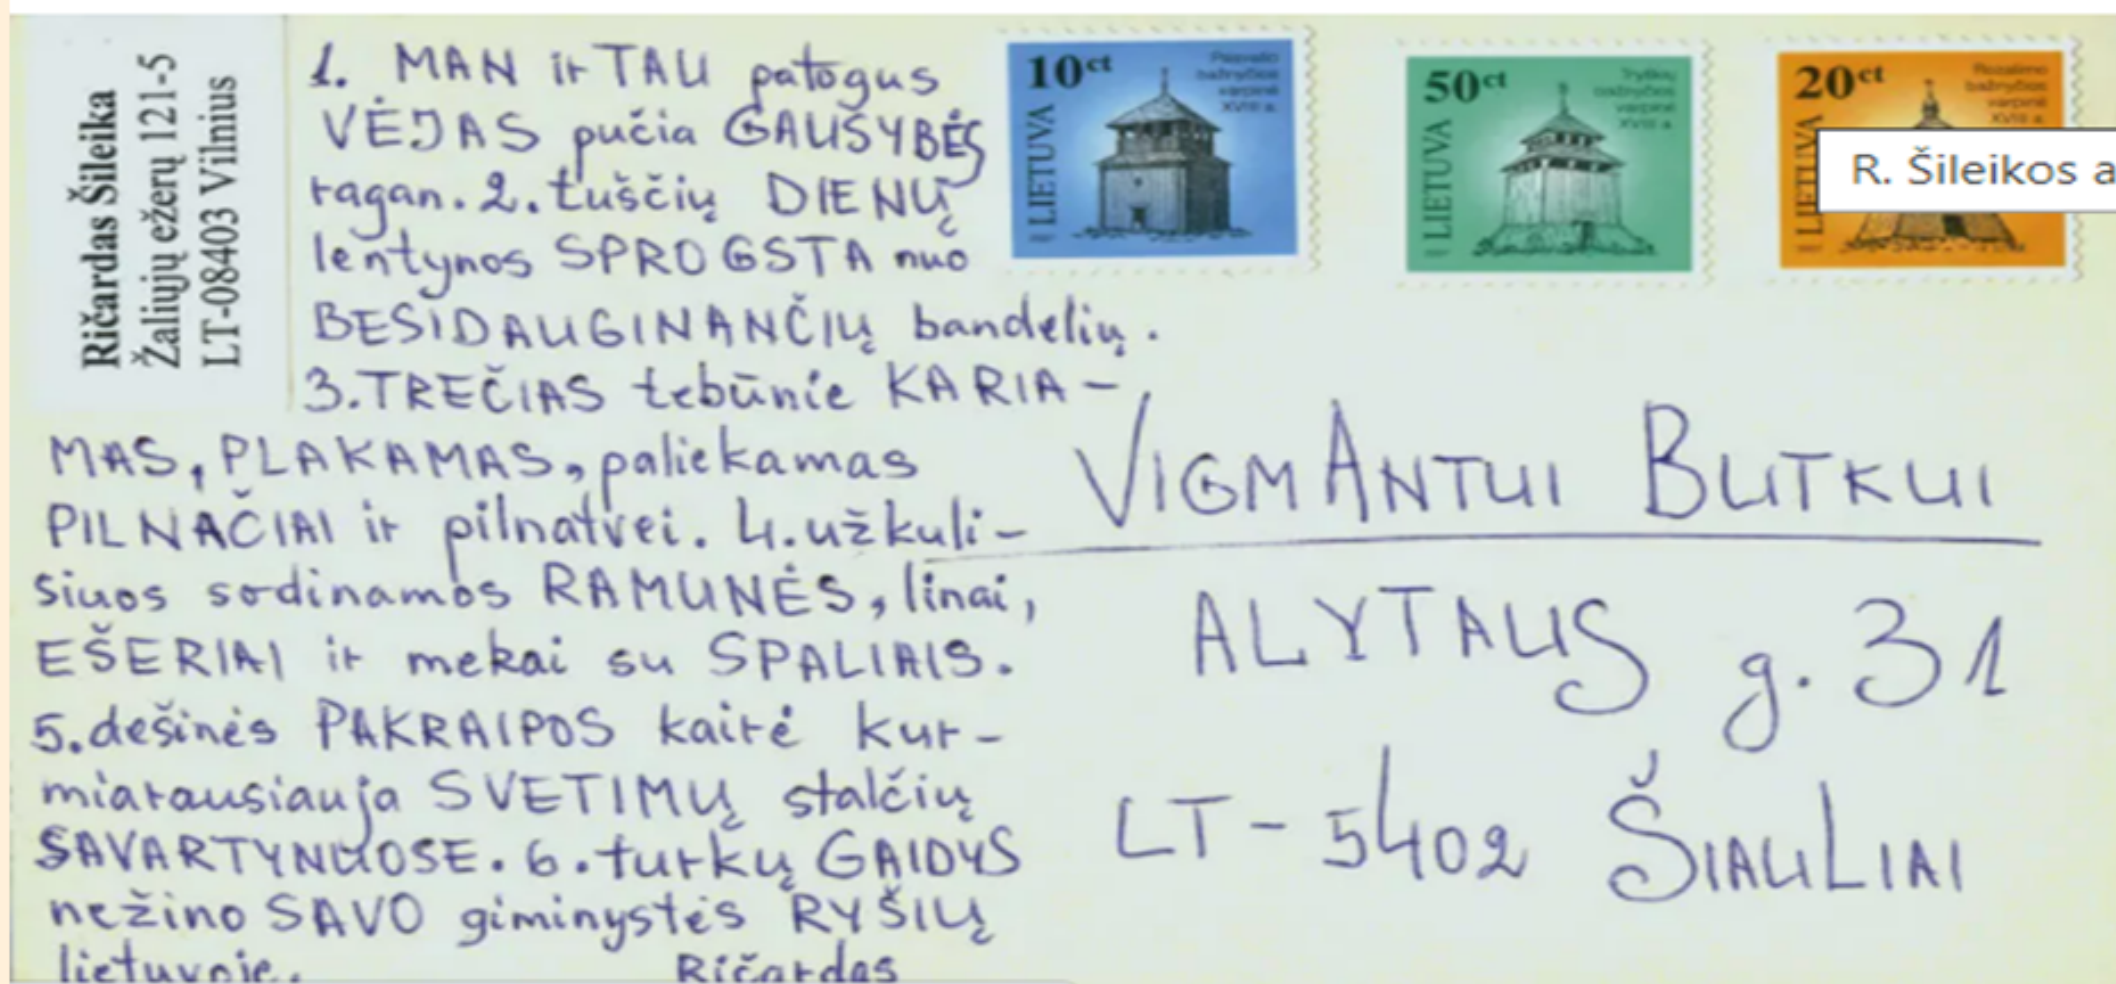 Ričardas Šileika
Žaliųjų ežerų 121-5
LT-08403 Vilnius
1. MAN ir TAU patogus
VĖJAS pučia GAUSYBĘ
ragan. 2. tuščių DIENŲ
lentynos SPROGSTA nuo
BESIDAUGINANČIŲ bandelių.
3. TREČIAS tebūnie KARIA-
MAS, PLAKAMAS, paliekamas
PILNAČIAI ir pilnatvei. 4. užkuli-
siuos sodinamos RAMUNĖS, linai,
EŠERIAI ir mekai su SPALIAIS.
5. dešinės PAKRAIPOS kairė kur-
miarausiauja SVETIMŲ stalčių
SAVARTYNUOSE. 6. turkų GAIDYS
nežino SAVO giminystės RYŠIŲ
lietuvoje.
Ričardas
10ct
LIETUVA
bažnyčios
varpinė
XVIII a.
50ct
LIETUVA
Tryškių
bažnyčios
varpinė
XVIII a.
20ct
LIETUVA
Rozalimo
bažnyčios
varpinė
XVIII a.
R. Šileikos a
VIGMANTUI BUTKUI
ALYTAUS g. 31
LT-5402 ŠIAULIAI